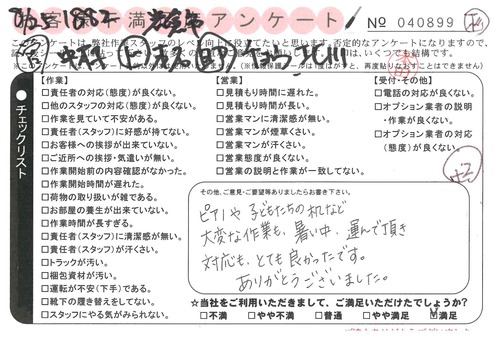 満 アンケート No 040899
このアンケートは、弊社作業スタッフのレベル向上に役立てたいと思います。否定的なアンケートになりますので、
チェックリスト
【作業】
□責任者の対応(態度)が良くない。
□他のスタッフの対応(態度)が良くない。
□作業を見ていて不安がある。
□責任者(スタッフ)に好感が持てない。
□お客様への挨拶が出来ていない。
□ご近所への挨拶・気遣いが無い。
□作業開始前の内容確認がなかった。
□作業開始時間が遅れた。
□荷物の取り扱いが雑である。
□お部屋の養生が出来ていない。
□作業時間が長すぎる。
□責任者(スタッフ)に清潔感が無い。
□責任者(スタッフ)が汗くさい。
□トラックが汚い。
□梱包資材が汚い。
□運転が不安(下手)である。
□靴下の履き替えをしてない。
□スタッフにやる気がみられない。
【営業】
□見積もり時間に遅れた。
□見積もり時間が長い。
□営業マンに清潔感が無い。
□営業マンが煙草くさい。
□営業マンが汗くさい。
□営業態度が良くない。
□営業の説明と作業が一致してない。
【受付・その他】
□電話の対応が良くない。
□オプション業者の説明
・作業が良くない。
□オプション業者の対応
(態度)が良くない。
その他、ご意見・ご要望等ありましたらお書き下さい。
ピアノや子どもたちの机など
大変な作業も、暑い中、運んで頂き
対応も、とても良かったです。
ありがとうございました。
☆当社をご利用いただきまして、ご満足いただけたでしょうか?
□不満 □やや不満 □普通 □やや満足 □満足